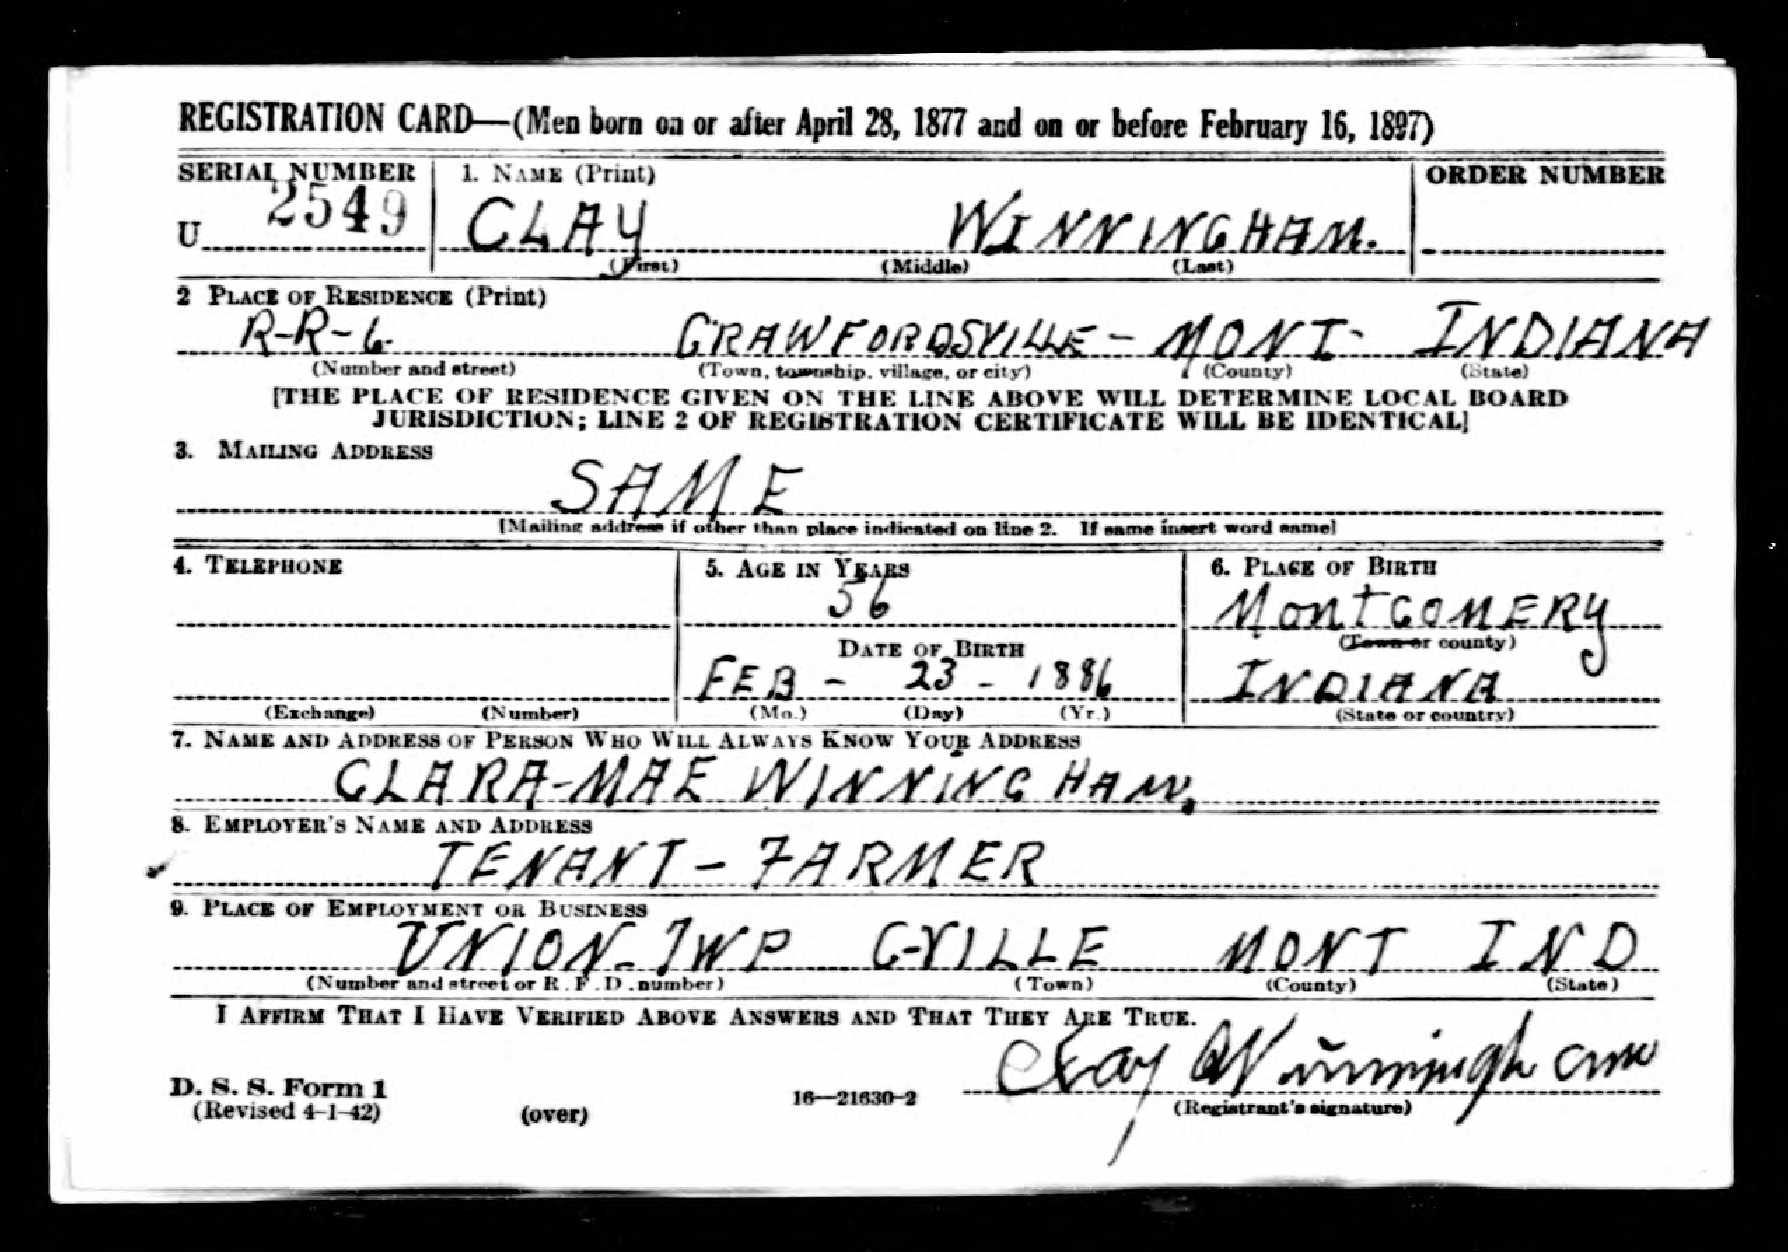 REGISTRATION CARD—(Men born on or after April 28, 1877 and on or before February 16, 1897)
SERIAL NUMBER 1. NAME (Print) ORDER NUMBER
U 2549 CLAY WINNINGHAM.
(First) (Middle) (Last)
2 PLACE OF RESIDENCE (Print)
R-R-6. CRAWFORDSVILLE - MONT- INDIANA
(Number and street) (Town, township, village, or city) (County) (State)
[THE PLACE OF RESIDENCE GIVEN ON THE LINE ABOVE WILL DETERMINE LOCAL BOARD
JURISDICTION; LINE 2 OF REGISTRATION CERTIFICATE WILL BE IDENTICAL]
3. MAILING ADDRESS
SAME
[Mailing address if other than place indicated on line 2. If same insert word same]
4. TELEPHONE 5. AGE IN YEARS 6. PLACE OF BIRTH
56 MONTGOMERY
DATE OF BIRTH (Town or county)
FEB - 23 - 1886 INDIANA
(Exchange) (Number) (Mo.) (Day) (Yr.) (State or country)
7. NAME AND ADDRESS OF PERSON WHO WILL ALWAYS KNOW YOUR ADDRESS
CLARA-MAE WINNINGHAM.
8. EMPLOYER'S NAME AND ADDRESS
TENANT - FARMER
9. PLACE OF EMPLOYMENT OR BUSINESS
UNION-TWP C-VILLE MONT IND
(Number and street or R. F. D. number) (Town) (County) (State)
I AFFIRM THAT I HAVE VERIFIED ABOVE ANSWERS AND THAT THEY ARE TRUE.
Clay Winningham
D. S. S. Form 1
(Revised 4-1-42) (over) 16—21630-2 (Registrant's signature)